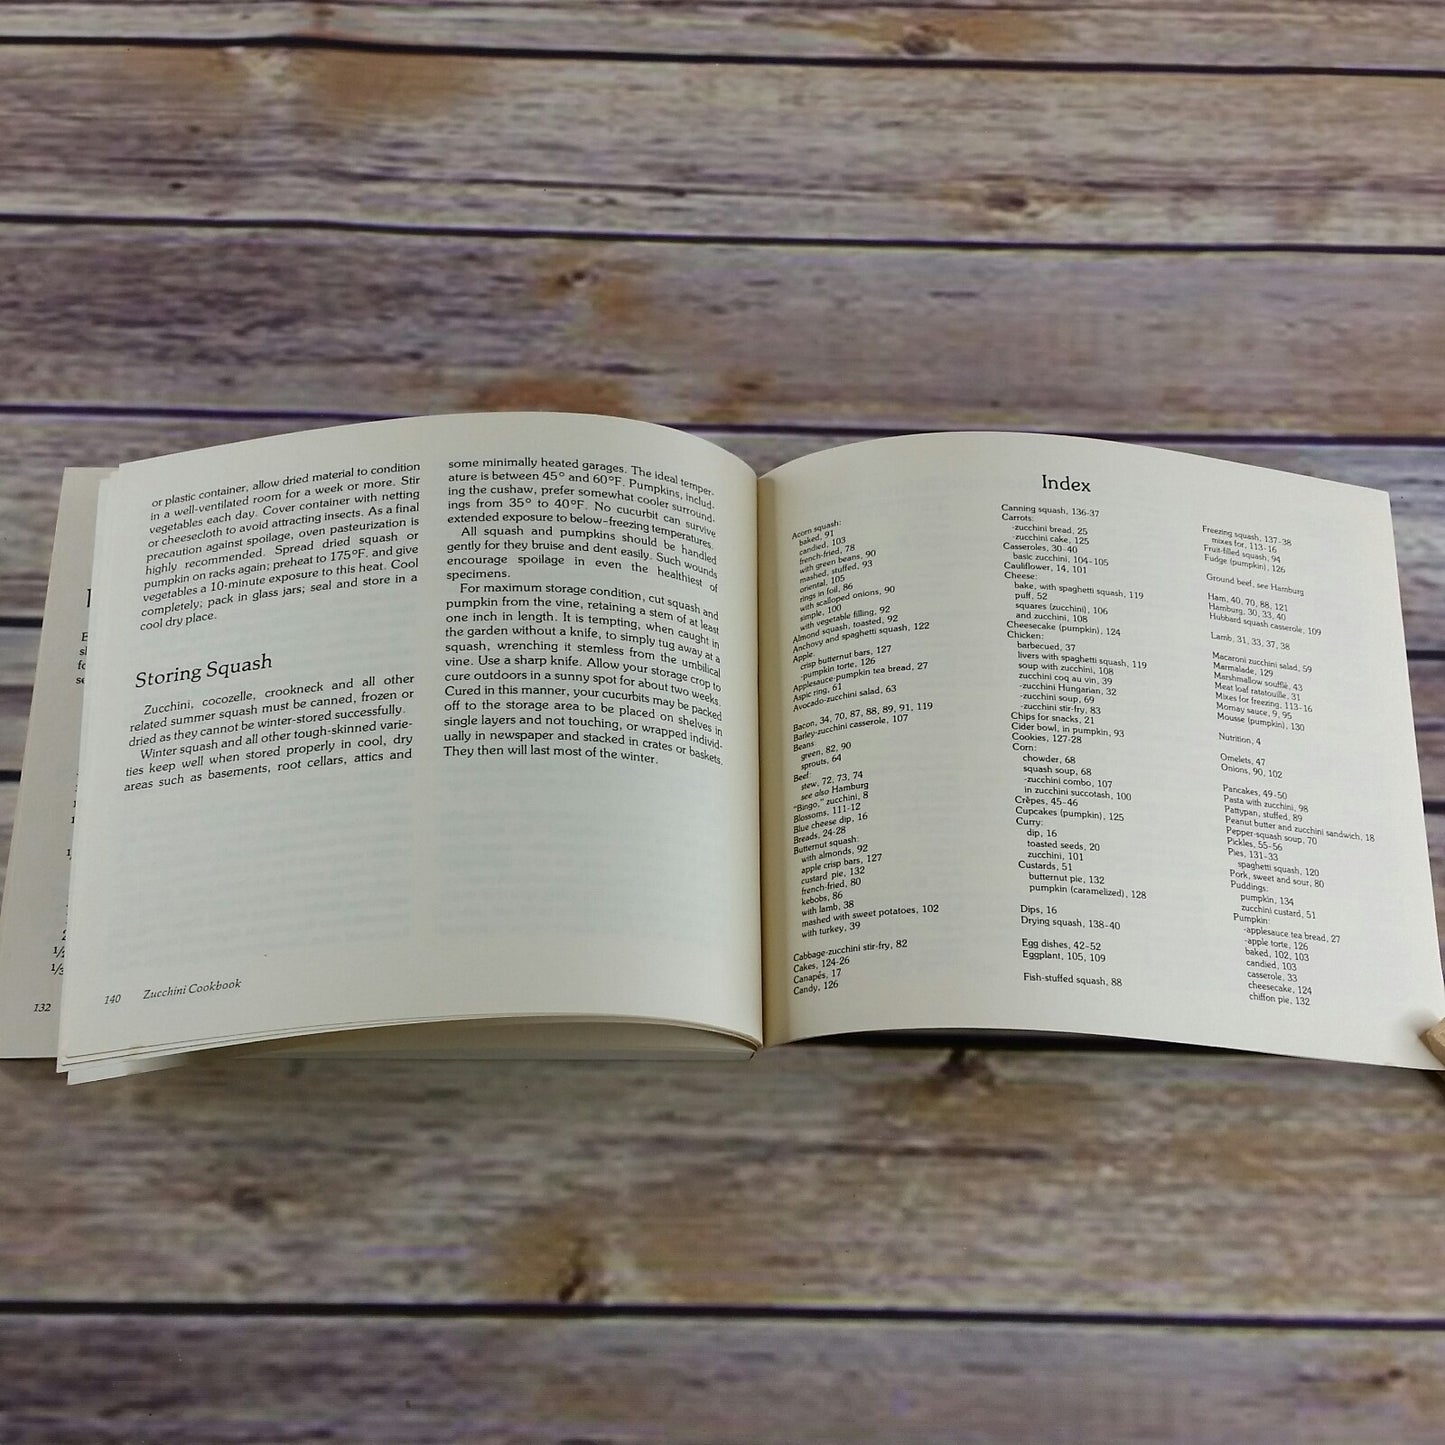 or plastic container, allow dried material to condition
in a well-ventilated room for a week or more. Stir
vegetables each day. Cover container with netting
or cheesecloth to avoid attracting insects. As a final
precaution against spoilage, oven pasteurization is
highly recommended. Spread dried squash or
pumpkin on racks again; preheat to 175°F. and give
vegetables a 10-minute exposure to this heat. Cool
completely; pack in glass jars; seal and store in a
cool dry place.
Storing Squash
Zucchini, cocozelle, crookneck and all other
related summer squash must be canned, frozen or
dried as they cannot be winter-stored successfully.
Winter squash and all other tough-skinned varie-
ties keep well when stored properly in cool, dry
areas such as basements, root cellars, attics and
some minimally heated garages. The ideal temper-
ature is between 45° and 60°F. Pumpkins, includ-
ing the cushaw, prefer somewhat cooler surround-
ings from 35° to 40°F. No cucurbit can survive
extended exposure to below-freezing temperatures.
All squash and pumpkins should be handled
gently for they bruise and dent easily. Such wounds
encourage spoilage in even the healthiest of
specimens.
For maximum storage condition, cut squash and
pumpkin from the vine, retaining a stem of at least
one inch in length. It is tempting, when caught in
the garden without a knife, to simply tug away at a
squash, wrenching it stemless from the umbilical
vine. Use a sharp knife. Allow your storage crop to
cure outdoors in a sunny spot for about two weeks.
Cured in this manner, your cucurbits may be packed
off to the storage area to be placed on shelves in
single layers and not touching, or wrapped individ-
ually in newspaper and stacked in crates or baskets.
They then will last most of the winter.
132
140 Zucchini Cookbook
Index
Acorn squash:
baked, 91
candied, 103
french-fried, 78
with green beans, 90
mashed, stuffed, 93
oriental, 105
rings in foil, 86
with scalloped onions, 90
simple, 100
with vegetable filling, 92
Almond squash, toasted, 92
Anchovy and spaghetti squash, 122
Apple:
crisp butternut bars, 127
-pumpkin torte, 126
Applesauce-pumpkin tea bread, 27
Aspic ring, 61
Avocado-zucchini salad, 63
Bacon, 34, 70, 87, 88, 89, 91, 119
Barley-zucchini casserole, 107
Beans:
green, 82, 90
sprouts, 64
Beef:
stew, 72, 73, 74
see also Hamburg
"Bingo," zucchini, 8
Blossoms, 111-12
Blue cheese dip, 16
Breads, 24-28
Butternut squash:
with almonds, 92
apple crisp bars, 127
custard pie, 132
french-fried, 80
kebobs, 86
with lamb, 38
mashed with sweet potatoes, 102
with turkey, 39
Cabbage-zucchini stir-fry, 82
Cakes, 124-26
Canapés, 17
Candy, 126
Canning squash, 136-37
Carrots:
-zucchini bread, 25
-zucchini cake, 125
Casseroles, 30-40
basic zucchini, 104-105
Cauliflower, 14, 101
Cheese:
bake, with spaghetti squash, 119
puff, 52
squares (zucchini), 106
and zucchini, 108
Cheesecake (pumpkin), 124
Chicken:
barbecued, 37
livers with spaghetti squash, 119
soup with zucchini, 108
zucchini coq au vin, 39
-zucchini Hungarian, 32
-zucchini soup, 69
-zucchini stir-fry, 83
Chips for snacks, 21
Cider bowl, in pumpkin, 93
Cookies, 127-28
Corn:
chowder, 68
squash soup, 68
-zucchini combo, 107
in zucchini succotash, 100
Crêpes, 45-46
Cupcakes (pumpkin), 125
Curry:
dip, 16
toasted seeds, 20
zucchini, 101
Custards, 51
butternut pie, 132
pumpkin (caramelized), 128
Dips, 16
Drying squash, 138-40
Egg dishes, 42-52
Eggplant, 105, 109
Fish-stuffed squash, 88
Freezing squash, 137-38
mixes for, 113-16
Fruit-filled squash, 94
Fudge (pumpkin), 126
Ground beef, see Hamburg
Ham, 40, 70, 88, 121
Hamburg, 30, 33, 40
Hubbard squash casserole, 109
Lamb, 31, 33, 37, 38
Macaroni zucchini salad, 59
Marmalade, 129
Marshmallow soufflé, 43
Meat loaf ratatouille, 31
Mixes for freezing, 113-16
Mornay sauce, 9, 95
Mousse (pumpkin), 130
Nutrition, 4
Omelets, 47
Onions, 90, 102
Pancakes, 49-50
Pasta with zucchini, 98
Pattypan, stuffed, 89
Peanut butter and zucchini sandwich, 18
Pepper-squash soup, 70
Pickles, 55-56
Pies, 131-33
spaghetti squash, 120
Pork, sweet and sour, 80
Puddings:
pumpkin, 134
zucchini custard, 51
Pumpkin:
-applesauce tea bread, 27
-apple torte, 126
baked, 102, 103
candied, 103
casserole, 33
cheesecake, 124
chiffon pie, 132